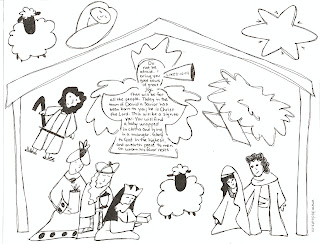 Do
not be
afraid. I
bring you
good news
of great
joy
that will be for
all the people. Today in the
town of David a Savior has
been born to you; he is Christ
the Lord. This will be a sign to
you: You will find
a baby wrapped
in cloths and lying
in a manger. Glory
to God in the highest,
and on earth peace to men
on whom his favor rests.